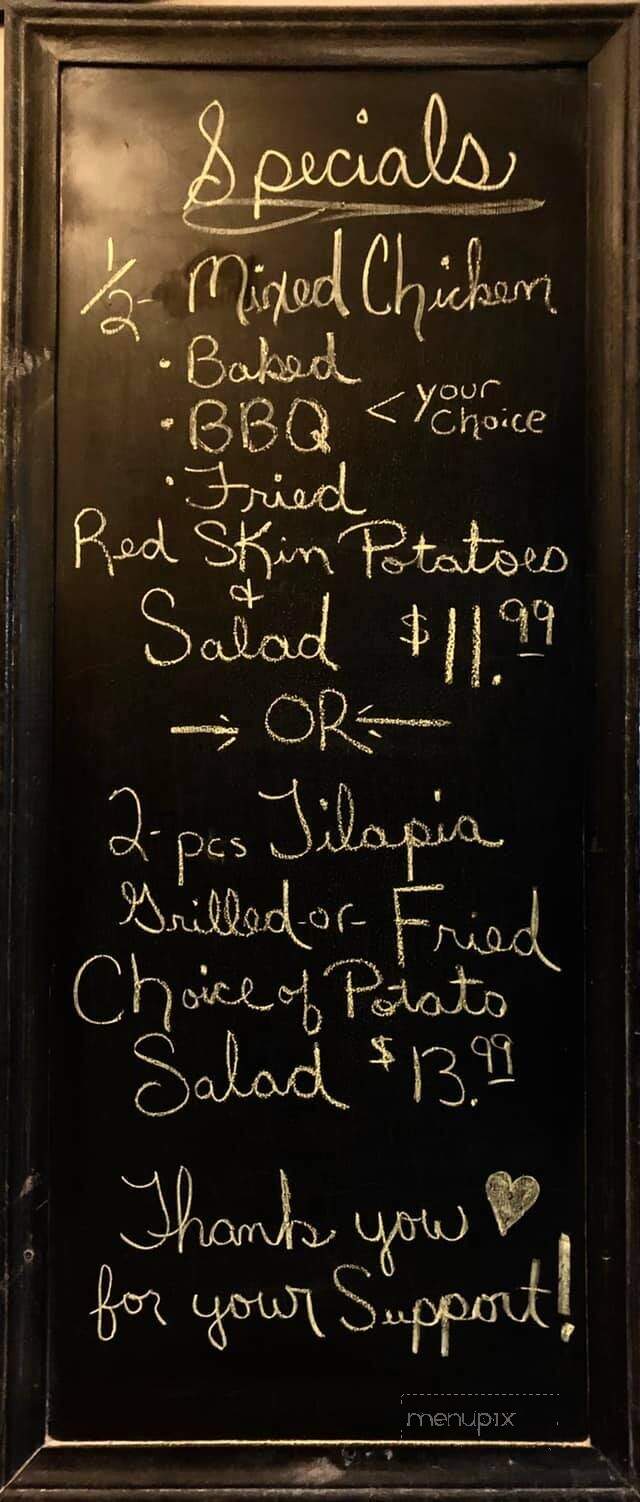 Specials
1/2- Mixed Chicken
• Baked
• BBQ < your choice
• Fried
Red Skin Potatoes
&
Salad $11.99
→ OR ←
2-pcs Tilapia
Grilled-or-Fried
Choice of Potato
Salad $13.99
Thank you ♥
for your Support!
menupix